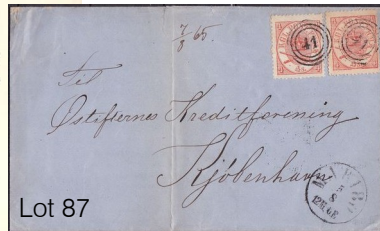 7/8 65.
41
Til
Østifternes Kreditforening
Kjöbenhavn
Lot 87